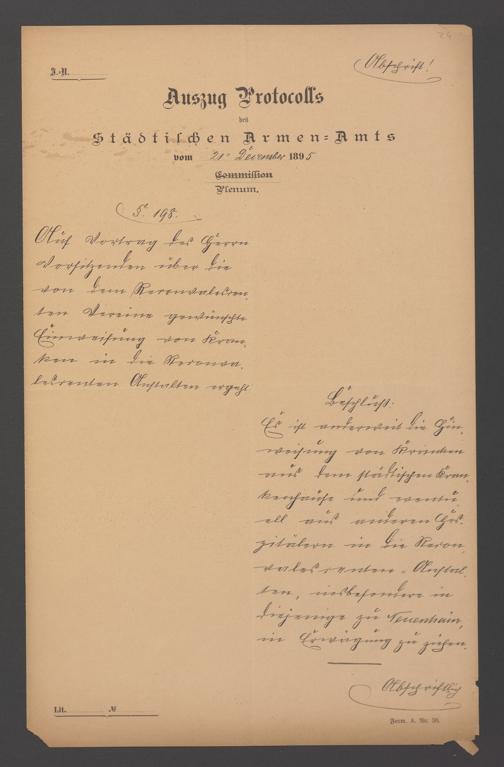 24
Abschrift!
J.-N.
Auszug Protocolls
des
Städtischen Armen=Amts
vom 21n December 1895
Commission
Plenum.
§. 198.
Auf Vortrag des Herrn
Vorsitzenden über die
von dem Reconvalescen,
ten Vereine gewünschte
Einweisung von Kran,
ken in die Reconva,
lescenten Anstalten ergeht
Beschluß:
Es ist anderweit die Ein,
weisung von Kranken
aus dem städtischen Kran,
kenhause und eventu
ell aus anderen Hos,
pitälern in die Recon,
valescenten-Anstal,
ten, insbesondere in
diejenige zu Neuenhain,
in Erwägung zu ziehen.
Abschriftlich
Lit. №
Form. A. Nr. 38.